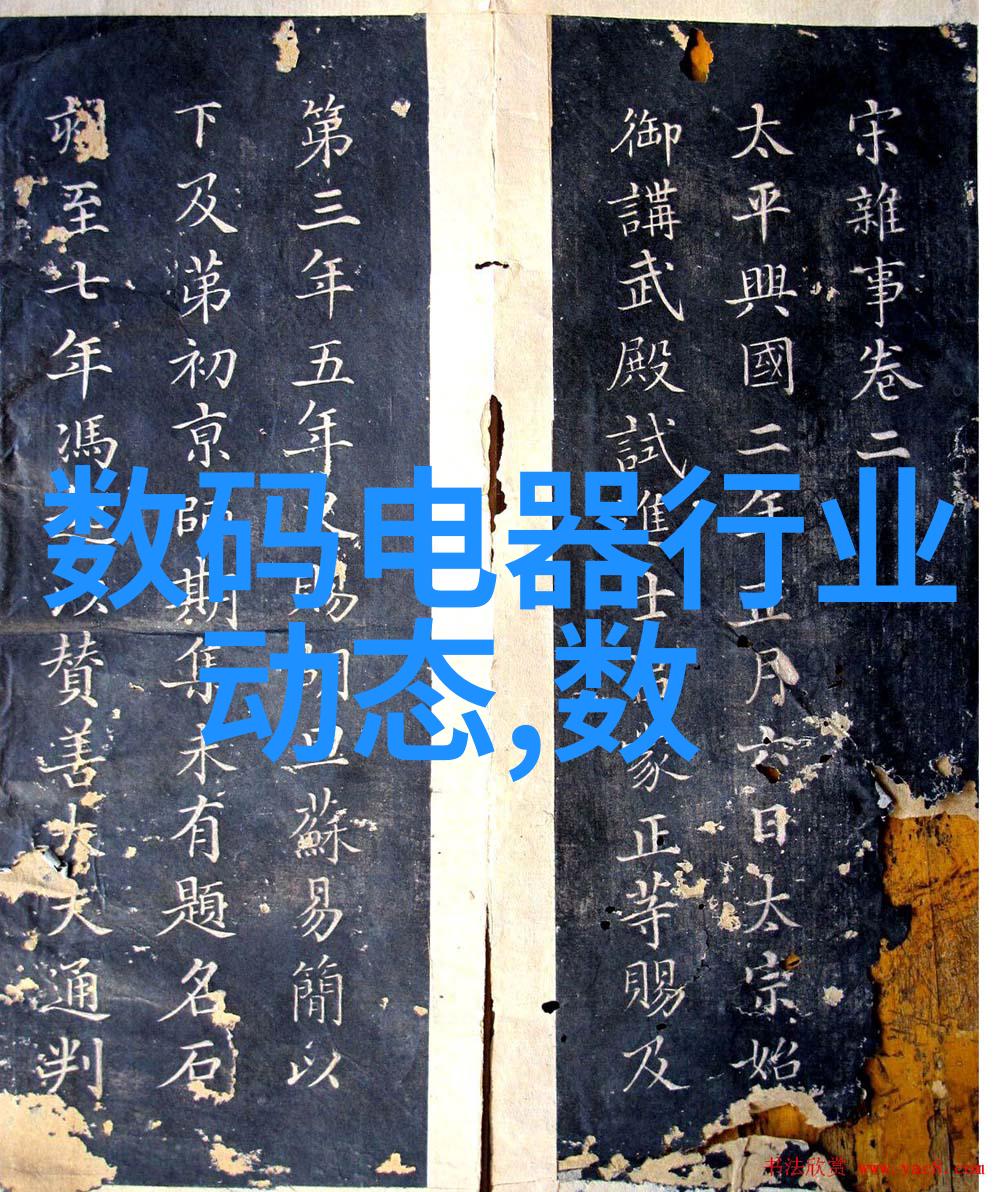 宋雜事卷二
太平興國二年正月六日太宗始
御講武殿試進士蒙正等賜及
第三年五年又賜胡旦蘇易簡以
下及第初京師期集未有題名石
至七年馮贊善大夫通判
数码电器行业
动态,数
书法欣赏 www.yac8.com